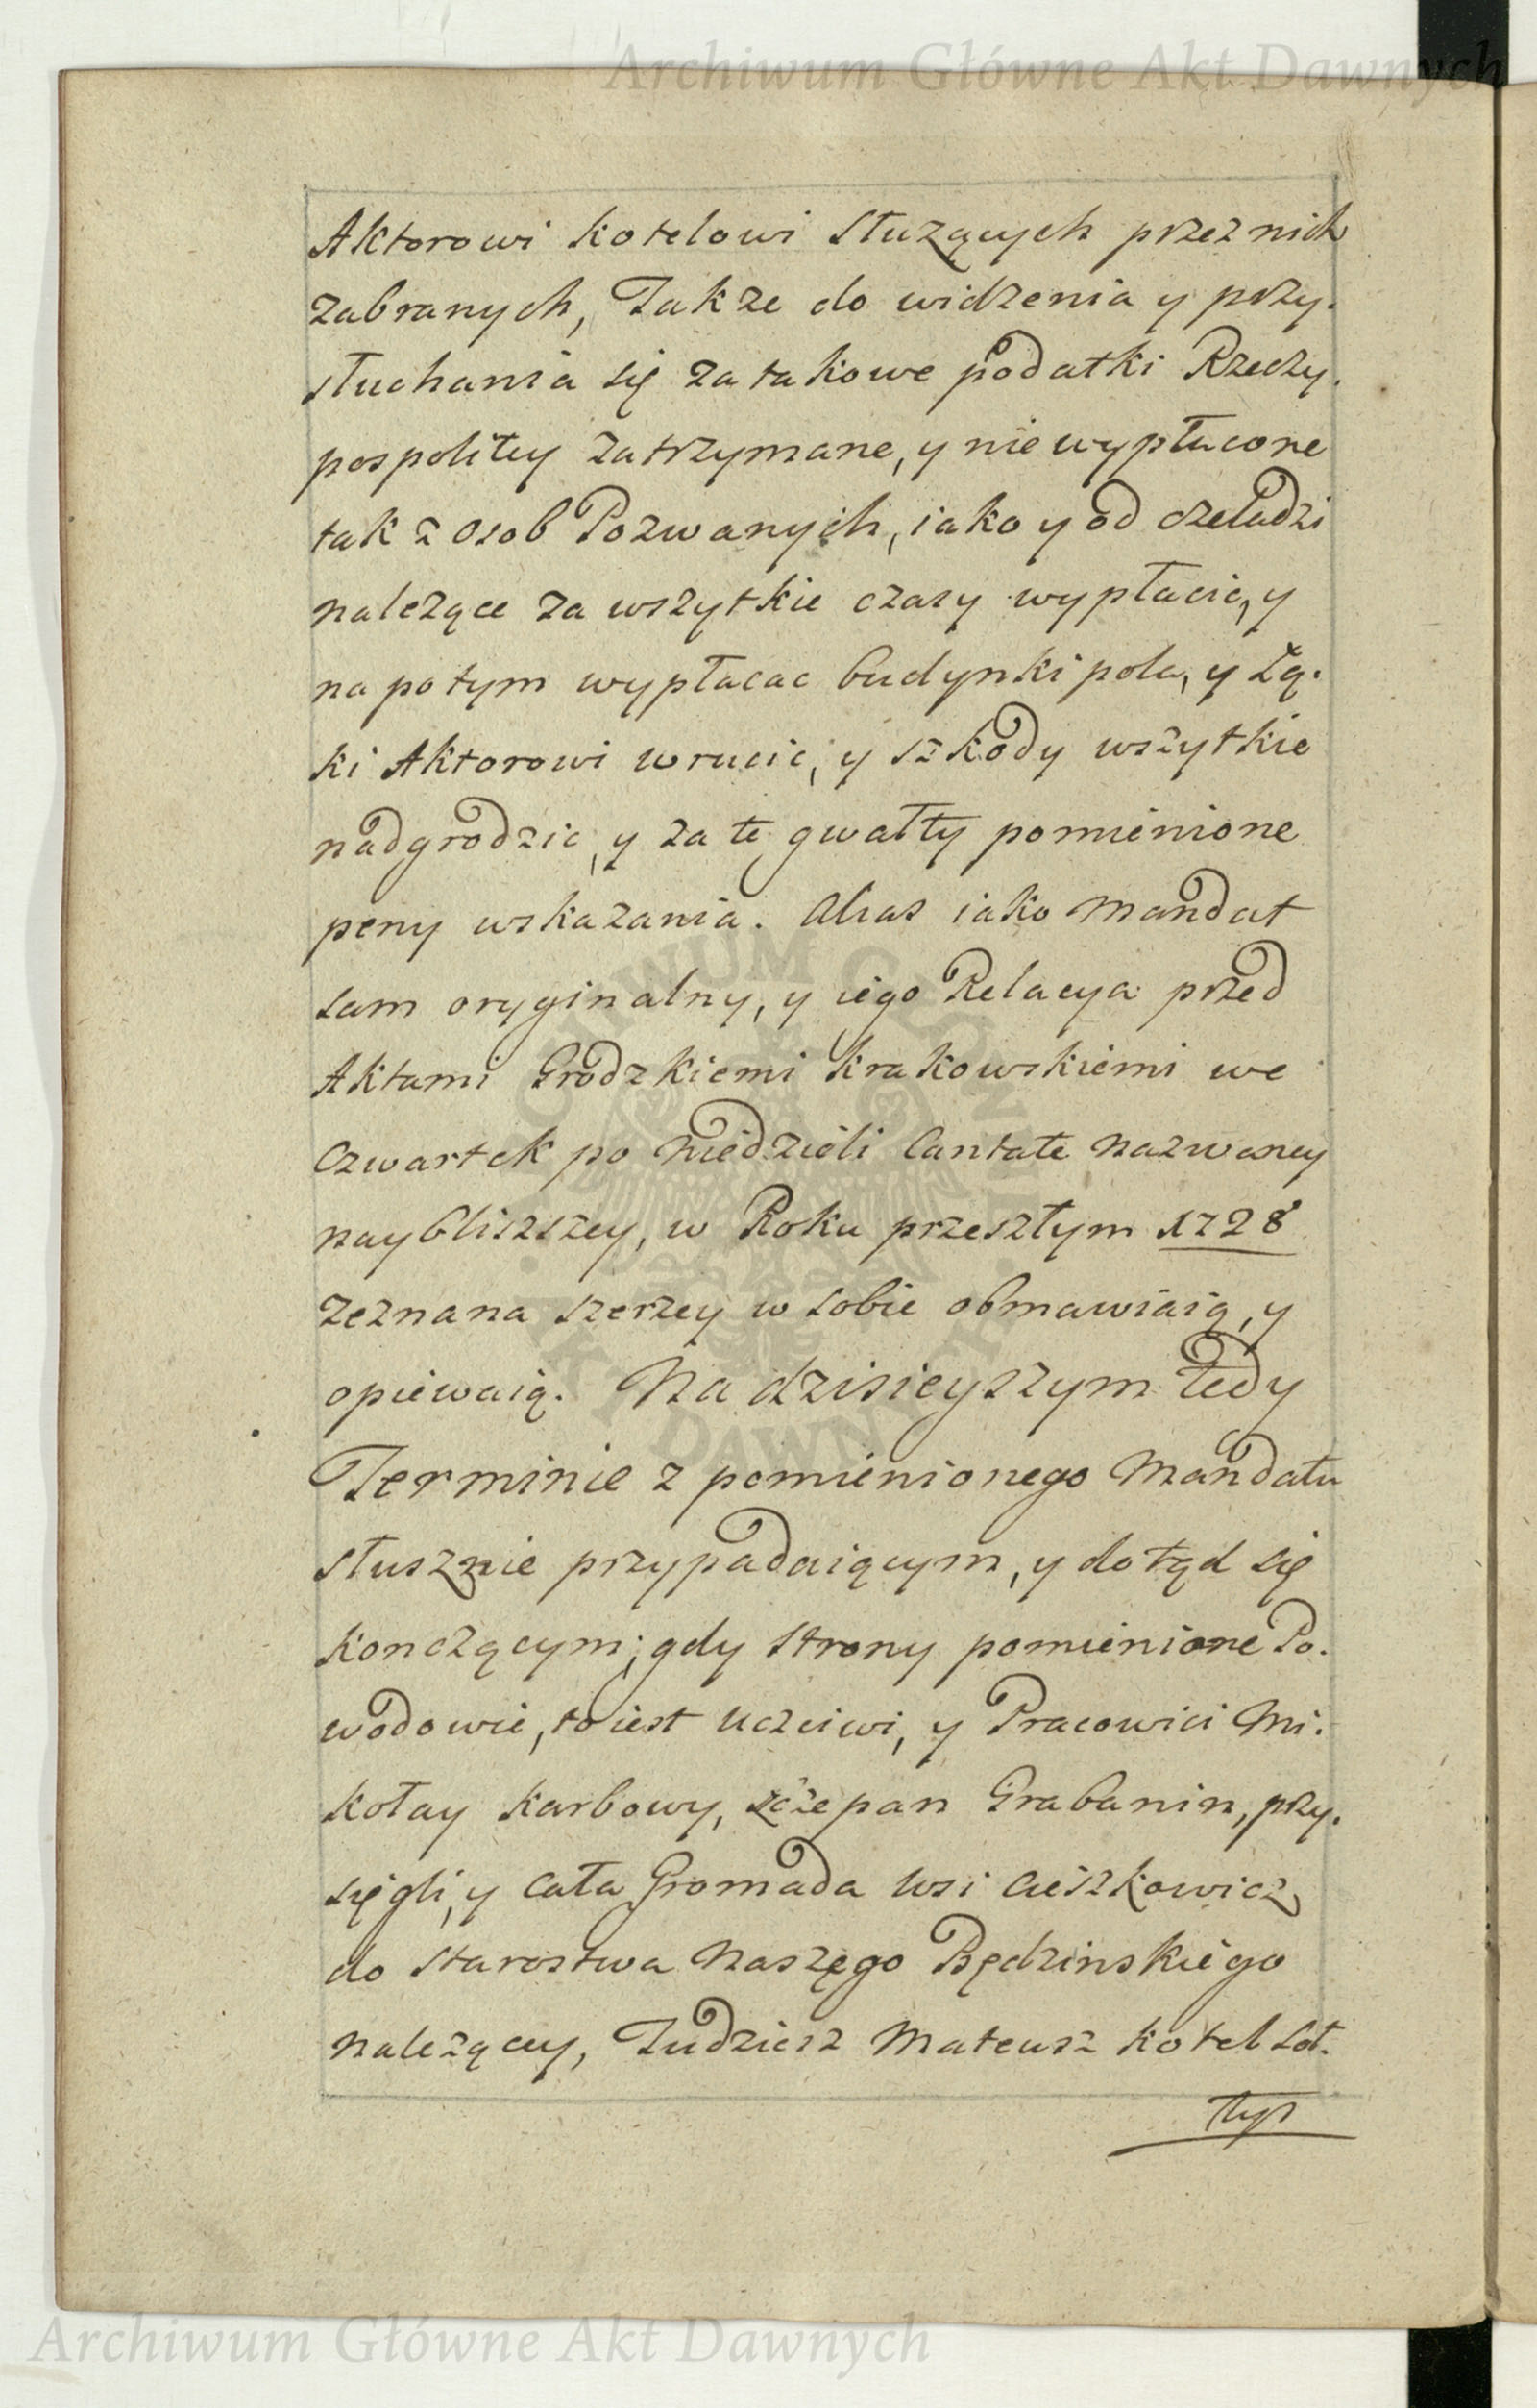 Archiwum Główne Akt Dawnych
Aktorowi Kotelowi służących przez nich
zabranych, Także do widzenia y przy.
słuchania się za takowe podatki Rzeczy.
pospolitey zatrzymane, y nie wypłacone
tak z osob Pozwanych, iako y od czeladzi
należące za wszytkie czasy wypłacic, y
na potym wypłacac budynki pola, y Łą.
ki Aktorowi wrucic, y szkody wszytkie
nadgrodzic, y za te gwałty pomienione
peny wskazania. Alias iako Mandat
sam oryginalny, y iego Relacya przed
Aktami Grodzkiemi Krakowskiemi we
Czwartek po Niedzieli Cantate nazwaney
naybliższey, w Roku przeszłym 1728
zeznana szerzey w sobie obmawiaią, y
opiewaią. Na dzisieyszym tedy
Terminie z pomienionego Mandatu
słusznie przypadaiącym, y dotąd się
konczącym; gdy strony pomienione Po.
wodowie, to iest Uczciwi, y Pracowici Mi.
kołay Karbowy, Szczepan Grabanin, przy.
sięgli, y cała Gromada Wsi Cieszkowicz
do Starostwa Naszego Będzinskiego
należącey, Tudziesz Mateusz Kotel Soł.
tys
Archiwum Główne Akt Dawnych